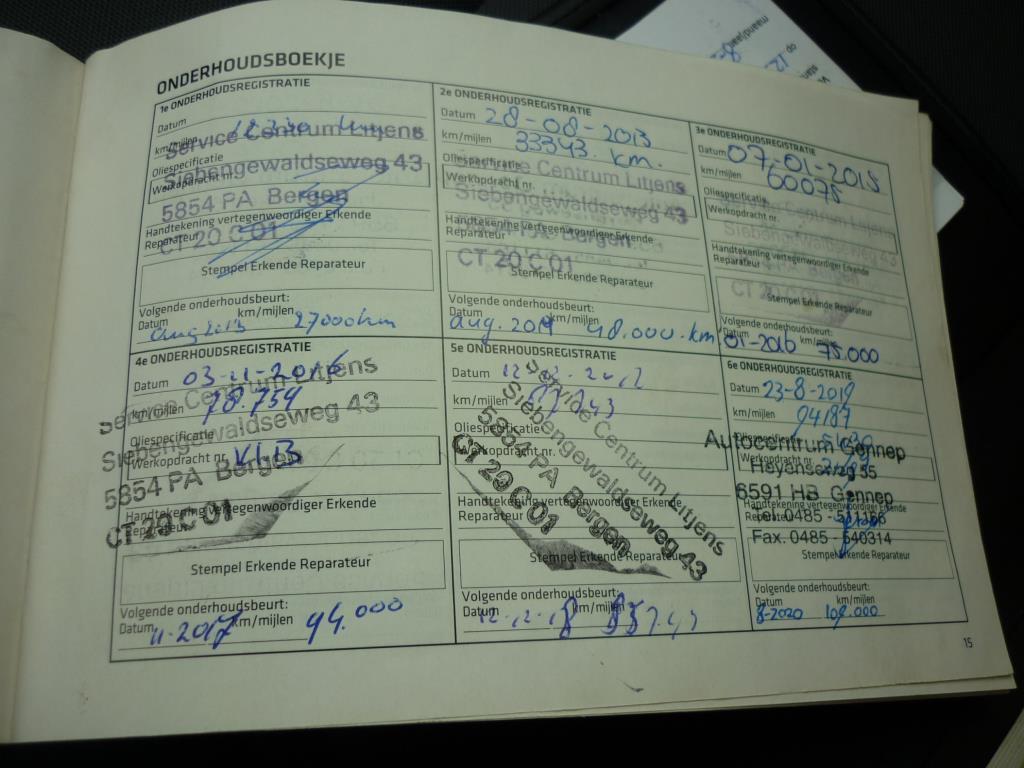 ONDERHOUDSBOEKJE
1e ONDERHOUDSREGISTRATIE
Datum
km/mijlen
Oliespecificatie
Werkopdracht nr.
Handtekening vertegenwoordiger Erkende
Reparateur
Service Centrum Litjens
Siebengewaldseweg 43
5854 PA Bergen
CT 20 C 01
Stempel Erkende Reparateur
Volgende onderhoudsbeurt:
Datum km/mijlen
aug 2013 27000 km
2e ONDERHOUDSREGISTRATIE
Datum 28-08-2013
km/mijlen 33343. km.
Oliespecificatie
Werkopdracht nr.
Handtekening vertegenwoordiger Erkende
Reparateur
Centrum Litjens
Siebengewaldseweg 43
Bergen
CT 20 C 01
Stempel Erkende Reparateur
Volgende onderhoudsbeurt:
Datum km/mijlen
aug. 2014 48.000. km
3e ONDERHOUDSREGISTRATIE
Datum 07-01-2015
km/mijlen 60075
Oliespecificatie
Werkopdracht nr.
Handtekening vertegenwoordiger Erkende
Reparateur
Centrum Litjens
Siebengewaldseweg 43
Bergen
CT 20 C 01
Stempel Erkende Reparateur
Volgende onderhoudsbeurt:
Datum km/mijlen
01-2016 75.000
4e ONDERHOUDSREGISTRATIE
Datum 03-11-2016
km/mijlen 78.754
Oliespecificatie
Werkopdracht nr.
Handtekening vertegenwoordiger Erkende
Reparateur
Service Centrum Litjens
Siebengewaldseweg 43
5854 PA Bergen
CT 20 C 01
Stempel Erkende Reparateur
Volgende onderhoudsbeurt:
Datum km/mijlen
11-2017 94.000
5e ONDERHOUDSREGISTRATIE
Datum
km/mijlen
Oliespecificatie
Werkopdracht nr.
Handtekening vertegenwoordiger Erkende
Reparateur
Service Centrum Litjens
Siebengewaldseweg 43
5854 PA Bergen
CT 20 C 01
Stempel Erkende Reparateur
Volgende onderhoudsbeurt:
Datum km/mijlen
12-12-18
6e ONDERHOUDSREGISTRATIE
Datum 23-8-2019
km/mijlen 94187
Oliespecificatie
Werkopdracht nr.
Autocentrum Gennep
6591 HB Gennep
Tel. 0485 - 511186
Fax. 0485 - 540314
Stempel Erkende Reparateur
Volgende onderhoudsbeurt:
Datum km/mijlen
8-2020 109.000
15